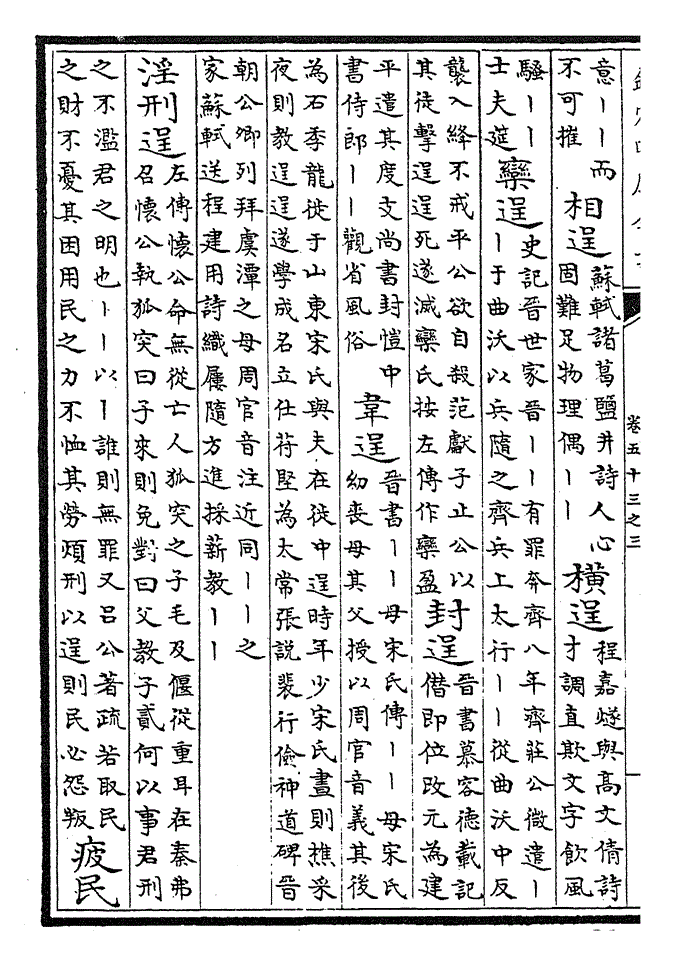 卷五十三之三
意丨丨而
不可摧
相逞
蘇軾諸葛鹽井詩人心
固難足物理偶丨丨
橫逞
程嘉燧與高文倩詩
才調直欺文字飲風
騷丨丨
士夫筵
欒逞
史記晉世家晉丨丨有罪奔齊八年齊莊公微遣丨
丨于曲沃以兵隨之齊兵上太行丨丨從曲沃中反
襲入絳不戒平公欲自殺范獻子止公以
其徒擊逞逞死遂滅欒氏按左傳作欒盈
封逞
晉書慕容德載記
僭即位改元為建
平遣其度支尚書封愷中
書侍郎丨丨觀省風俗
韋逞
晉書丨丨母宋氏傳丨丨母宋氏
幼喪母其父授以周官音義其後
為石季龍徙于山東宋氏與夫在徙中逞時年少宋氏晝則樵采
夜則教逞逞遂學成名立仕苻堅為太常張說裴行儉神道碑晉
朝公卿列拜虞潭之母周官音注近同丨丨之
家蘇軾送程建用詩織屨隨方進採薪教丨丨
淫刑逞
左傳懷公命無從亡人狐突之子毛及偃從重耳在秦弗
召懷公執狐突曰子來則免對曰父教子貳何以事君刑
之不濫君之明也丨丨以丨誰則無罪又呂公著疏若取民
之財不憂其困用民之力不恤其勞煩刑以逞則民必怨叛
疲民